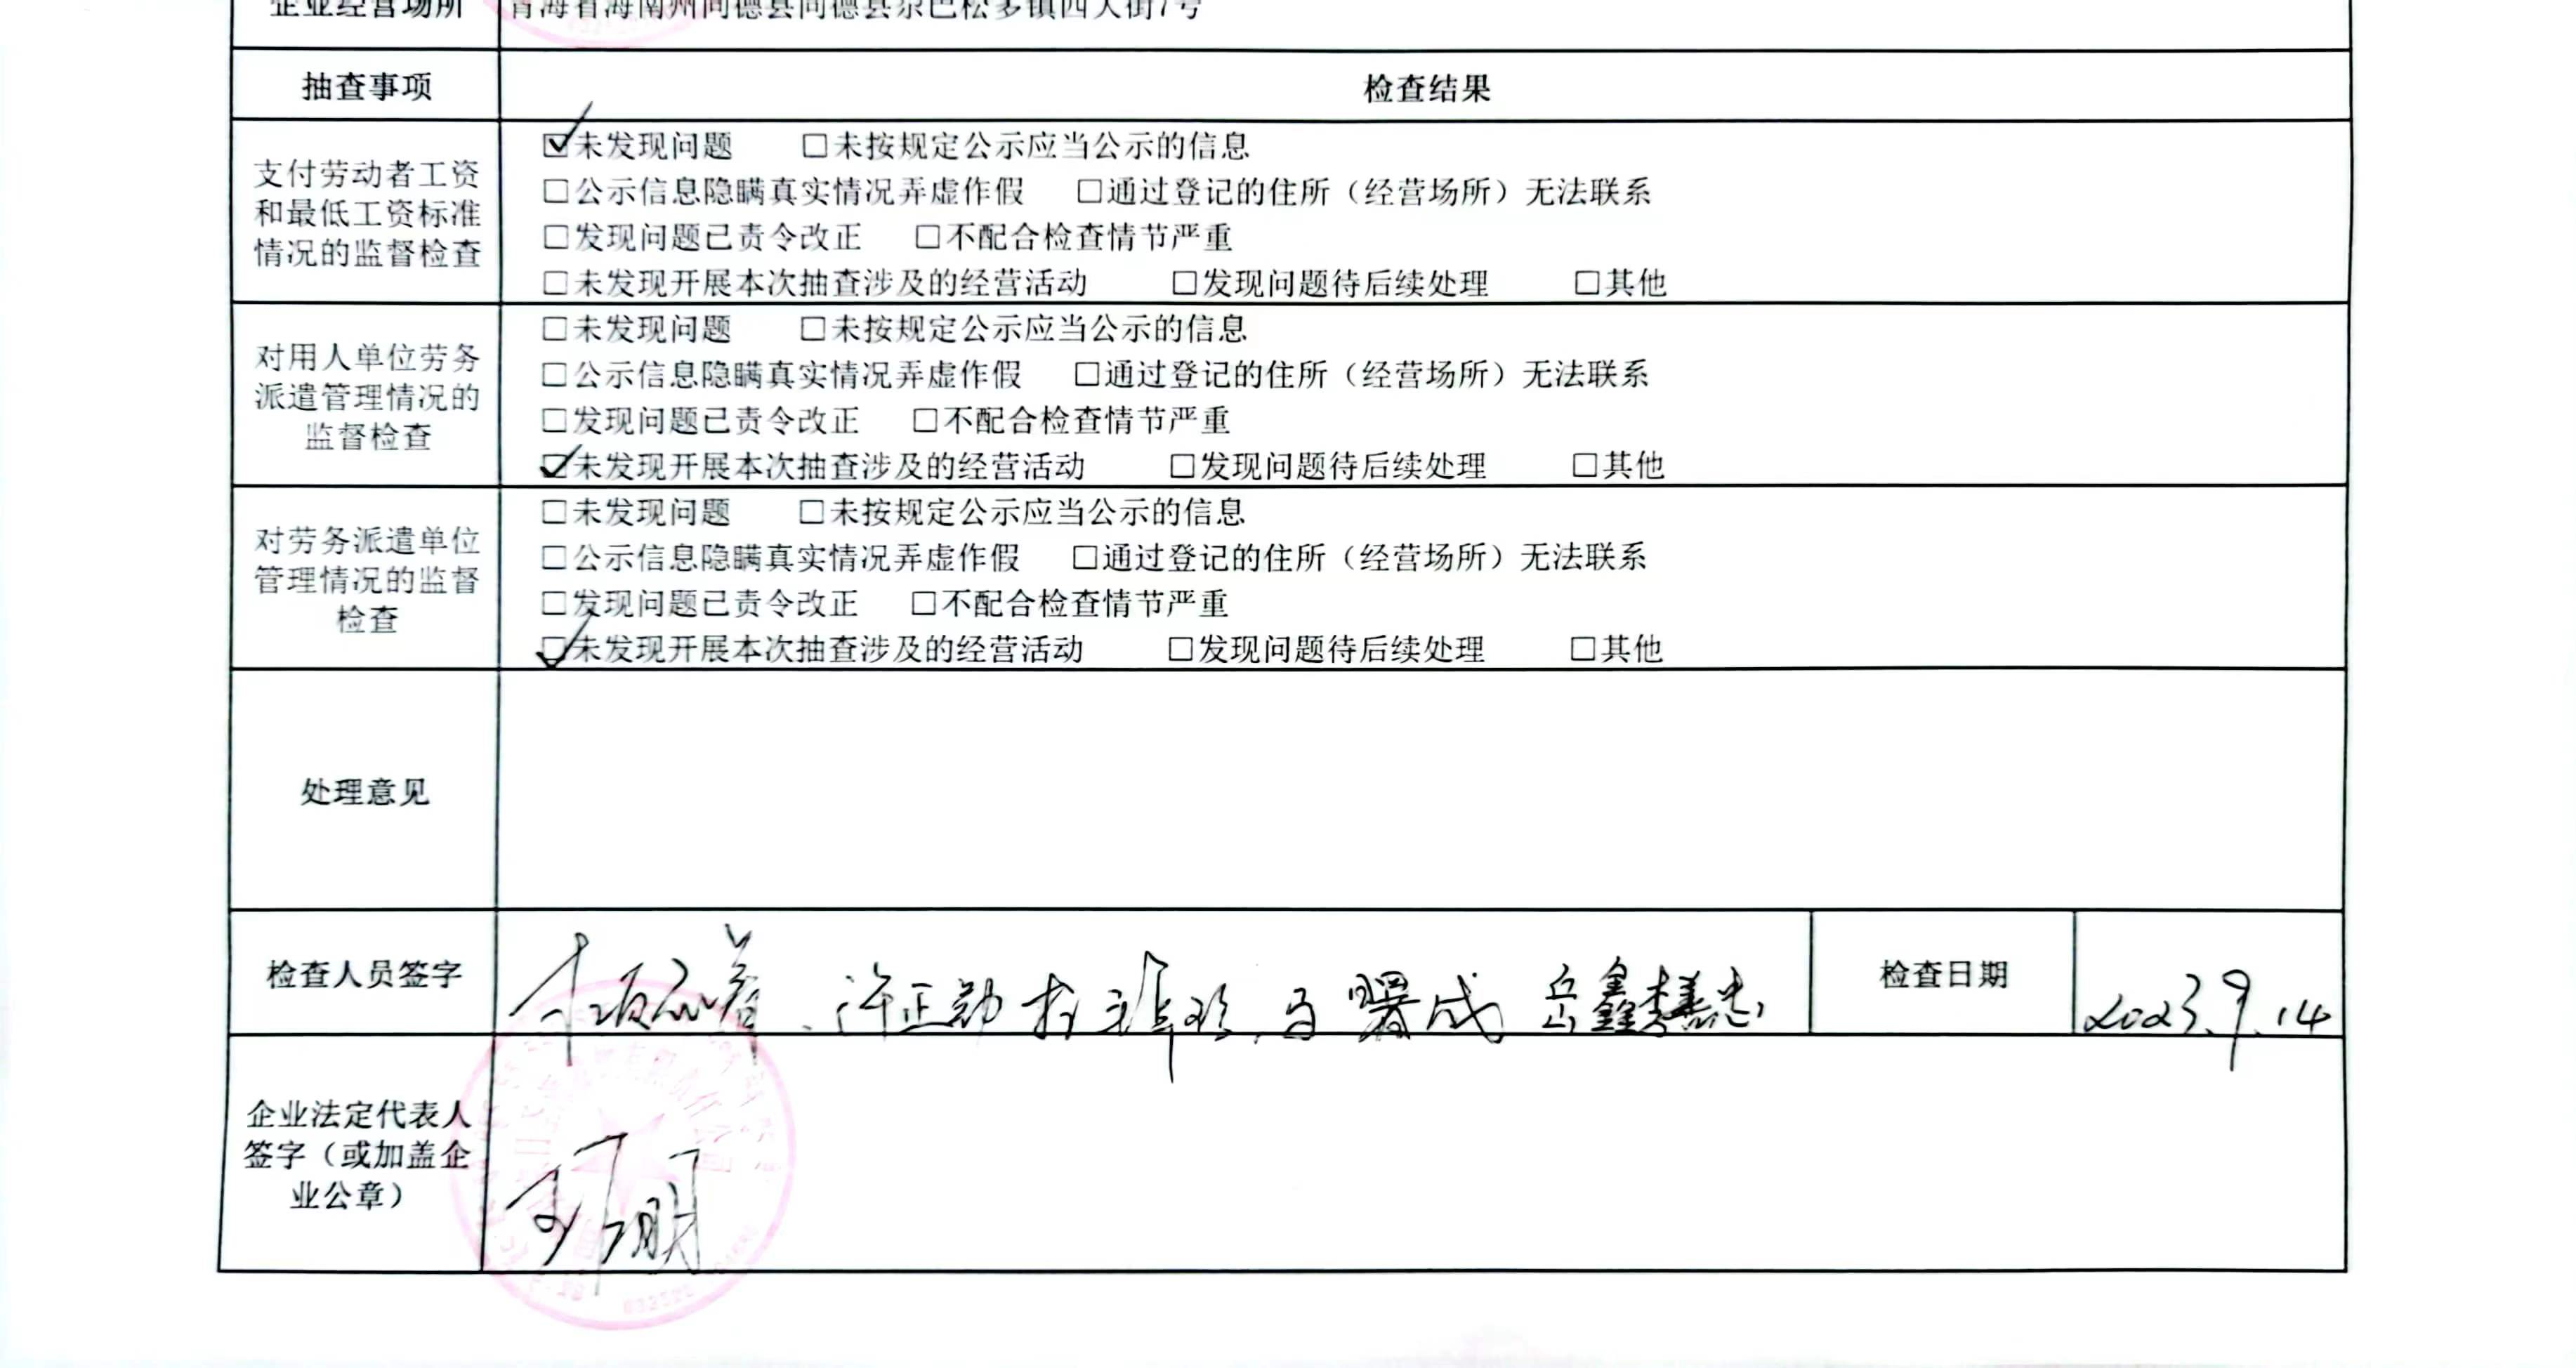 企业经营场所 青海省海南州同德县同德县尕巴松多镇西大街7号
抽查事项 检查结果
支付劳动者工资和最低工资标准情况的监督检查
☑未发现问题 □未按规定公示应当公示的信息
□公示信息隐瞒真实情况弄虚作假 □通过登记的住所（经营场所）无法联系
□发现问题已责令改正 □不配合检查情节严重
□未发现开展本次抽查涉及的经营活动 □发现问题待后续处理 □其他
对用人单位劳务派遣管理情况的监督检查
□未发现问题 □未按规定公示应当公示的信息
□公示信息隐瞒真实情况弄虚作假 □通过登记的住所（经营场所）无法联系
□发现问题已责令改正 □不配合检查情节严重
☑未发现开展本次抽查涉及的经营活动 □发现问题待后续处理 □其他
对劳务派遣单位管理情况的监督检查
□未发现问题 □未按规定公示应当公示的信息
□公示信息隐瞒真实情况弄虚作假 □通过登记的住所（经营场所）无法联系
□发现问题已责令改正 □不配合检查情节严重
☑未发现开展本次抽查涉及的经营活动 □发现问题待后续处理 □其他
处理意见
检查人员签字 许正勋 马曙成 岳鑫 李善忠 检查日期 2023.9.14
企业法定代表人
签字（或加盖企
业公章）